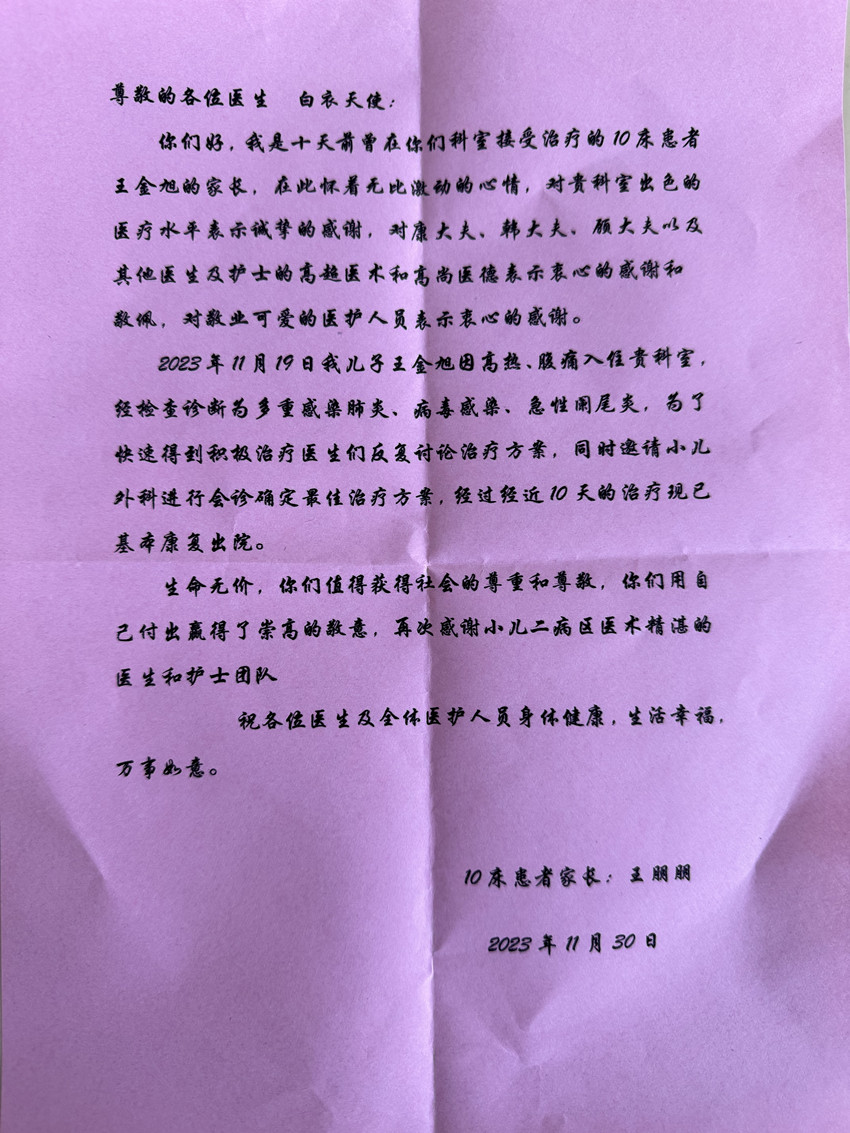 尊敬的各位医生　白衣天使：
你们好，我是十天前曾在你们科室接受治疗的10床患者
王金旭的家长，在此怀着无比激动的心情，对贵科室出色的
医疗水平表示诚挚的感谢，对康大夫、韩大夫、顾大夫以及
其他医生及护士的高超医术和高尚医德表示衷心的感谢和
敬佩，对敬业可爱的医护人员表示衷心的感谢。
2023年11月19日我儿子王金旭因高热、腹痛入住贵科室，
经检查诊断为多重感染肺炎、病毒感染、急性阑尾炎，为了
快速得到积极治疗医生们反复讨论治疗方案，同时邀请小儿
外科进行会诊确定最佳治疗方案，经过经近10天的治疗现已
基本康复出院。
生命无价，你们值得获得社会的尊重和尊敬，你们用自
己付出赢得了崇高的敬意，再次感谢小儿二病区医术精湛的
医生和护士团队
祝各位医生及全体医护人员身体健康，生活幸福，
万事如意。
10床患者家长：王朋朋
2023年11月30日